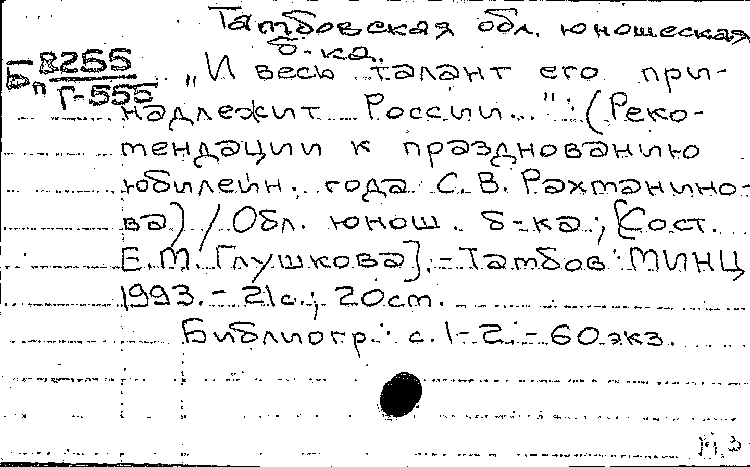 Тамбовская обл. юношеская
б-ка.
Бп 8255
Г-555
„И весь талант его при-
надлежит России..." : (Реко-
мендации к празднованию
юбилейн. года С. В. Рахманино-
ва) / Обл. юнош. б-ка; [Сост.
Е.М. Глушкова]. - Тамбов: МИНЦ
1993. - 21с.; 20см.
Библиогр.: с. 1-2. - 60 экз.